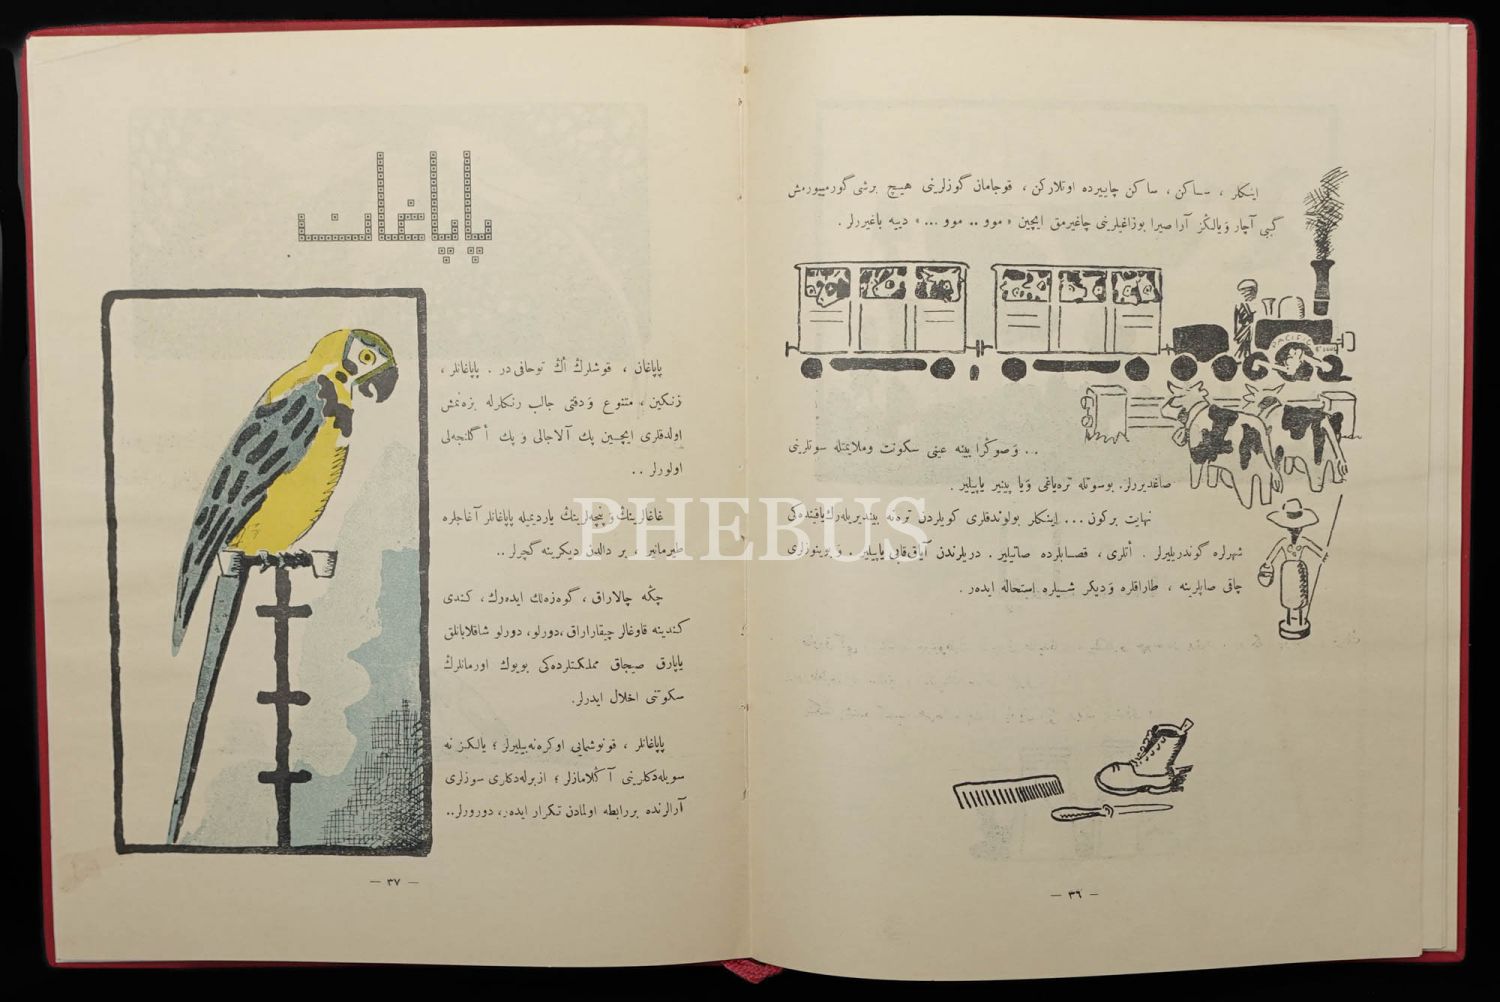 اینكلر ، ساكن ، ساكن چاییرده اوتلاركن ، قوجامان گوزلرینی هیچ برشی گورمییورمش
گبی آچار و یالڭز آرا صیرا بوزاغیلرینی چاغیرمق ایچین « موو .. موو ... » دییه باغیررلر .
PACIFIC
.. و صوڭرا یینه عینی سكونت وملایمتله سوتلرینی
صاغدیررلر. بوسوتله تره‌یاغی و یا پینیر یاپیلیر .
نهایت برگون ... اینكلر بولوندقلری كویلردن ترەنه بیندیریله‌رك یاقینده‌كی
شهرلره گوندریلیرلر . أتلری ، قصابلرده صاتیلیر . دریلرندن آیاق‌قابی یاپیلیر . و بوینوزلری
چاقی صاپلرینه ، طاراقلره و دیگر شیلره استحاله ایده‌ر .
— ٣٦ —
پاپاغان
پاپاغان ، قوشلرڭ أڭ توحافی در . پاپاغانلر ،
زنكین ، متنوع و دقتی جالب رنكلرله بزه‌نمش
اولدقلری ایچین پك آلاجالی و پك أگلنجه‌لی
اولورلر ..
غاغالرینڭ و پنچه‌لرینڭ یاردیمیله پاپاغانلر آغاجلره
طیرمانیر ، بر دالدن دیگرینه گچرلر ..
چڭه چالاراق ، گوه‌زه‌لك ایده‌رك ، كندی
كندینه قاوغالر چیقاراراق ، دورلو ، دورلو شاقلابانلق
یاپارق صیجاق مملكتلرده‌كی بویوك اورمانلرڭ
سكوتنی اخلال ایدرلر.
پاپاغانلر ، قونوشمایی اوگره‌نه‌بیلیرلر ؛ یالڭز نه
سویله‌دكلرینی آڭلامازلر ؛ ازبرله‌دكلری سوزلری
آرالرنده بررابطه اولمادن تكرار ایده‌ر، دورورلر..
— ٣٧ —
PHEBUS